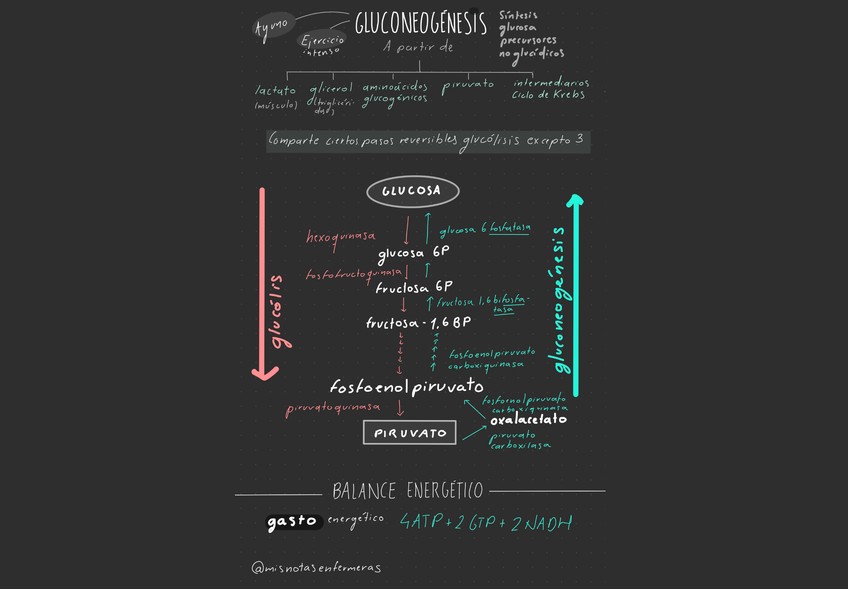 Ayuno
GLUCONEOGÉNESIS
Síntesis
glucosa
precursores
no glucídicos
Ejercicio
intenso
A partir de
lactato
(músculo)
glicerol
(triglicéri-
dos)
aminoácidos
glucogénicos
piruvato
intermediarios
Ciclo de Krebs
Comparte ciertos pasos reversibles glucólisis excepto 3
GLUCOSA
glucólis
gluconeogénesis
hexoquinasa
glucosa 6 fosfatasa
glucosa 6P
fosfofructoquinasa
fructosa 6P
fructosa 1,6 bifosfa-
tasa
fructosa - 1,6 BP
fosfoenolpiruvato
carboxiquinasa
fosfoenolpiruvato
piruvatoquinasa
fosfoenolpiruvato
carboxiquinasa
oxalacetato
PIRUVATO
piruvato
carboxilasa
BALANCE ENERGÉTICO
gasto energético 4ATP + 2 GTP + 2 NADH
@misnotasenfermeras